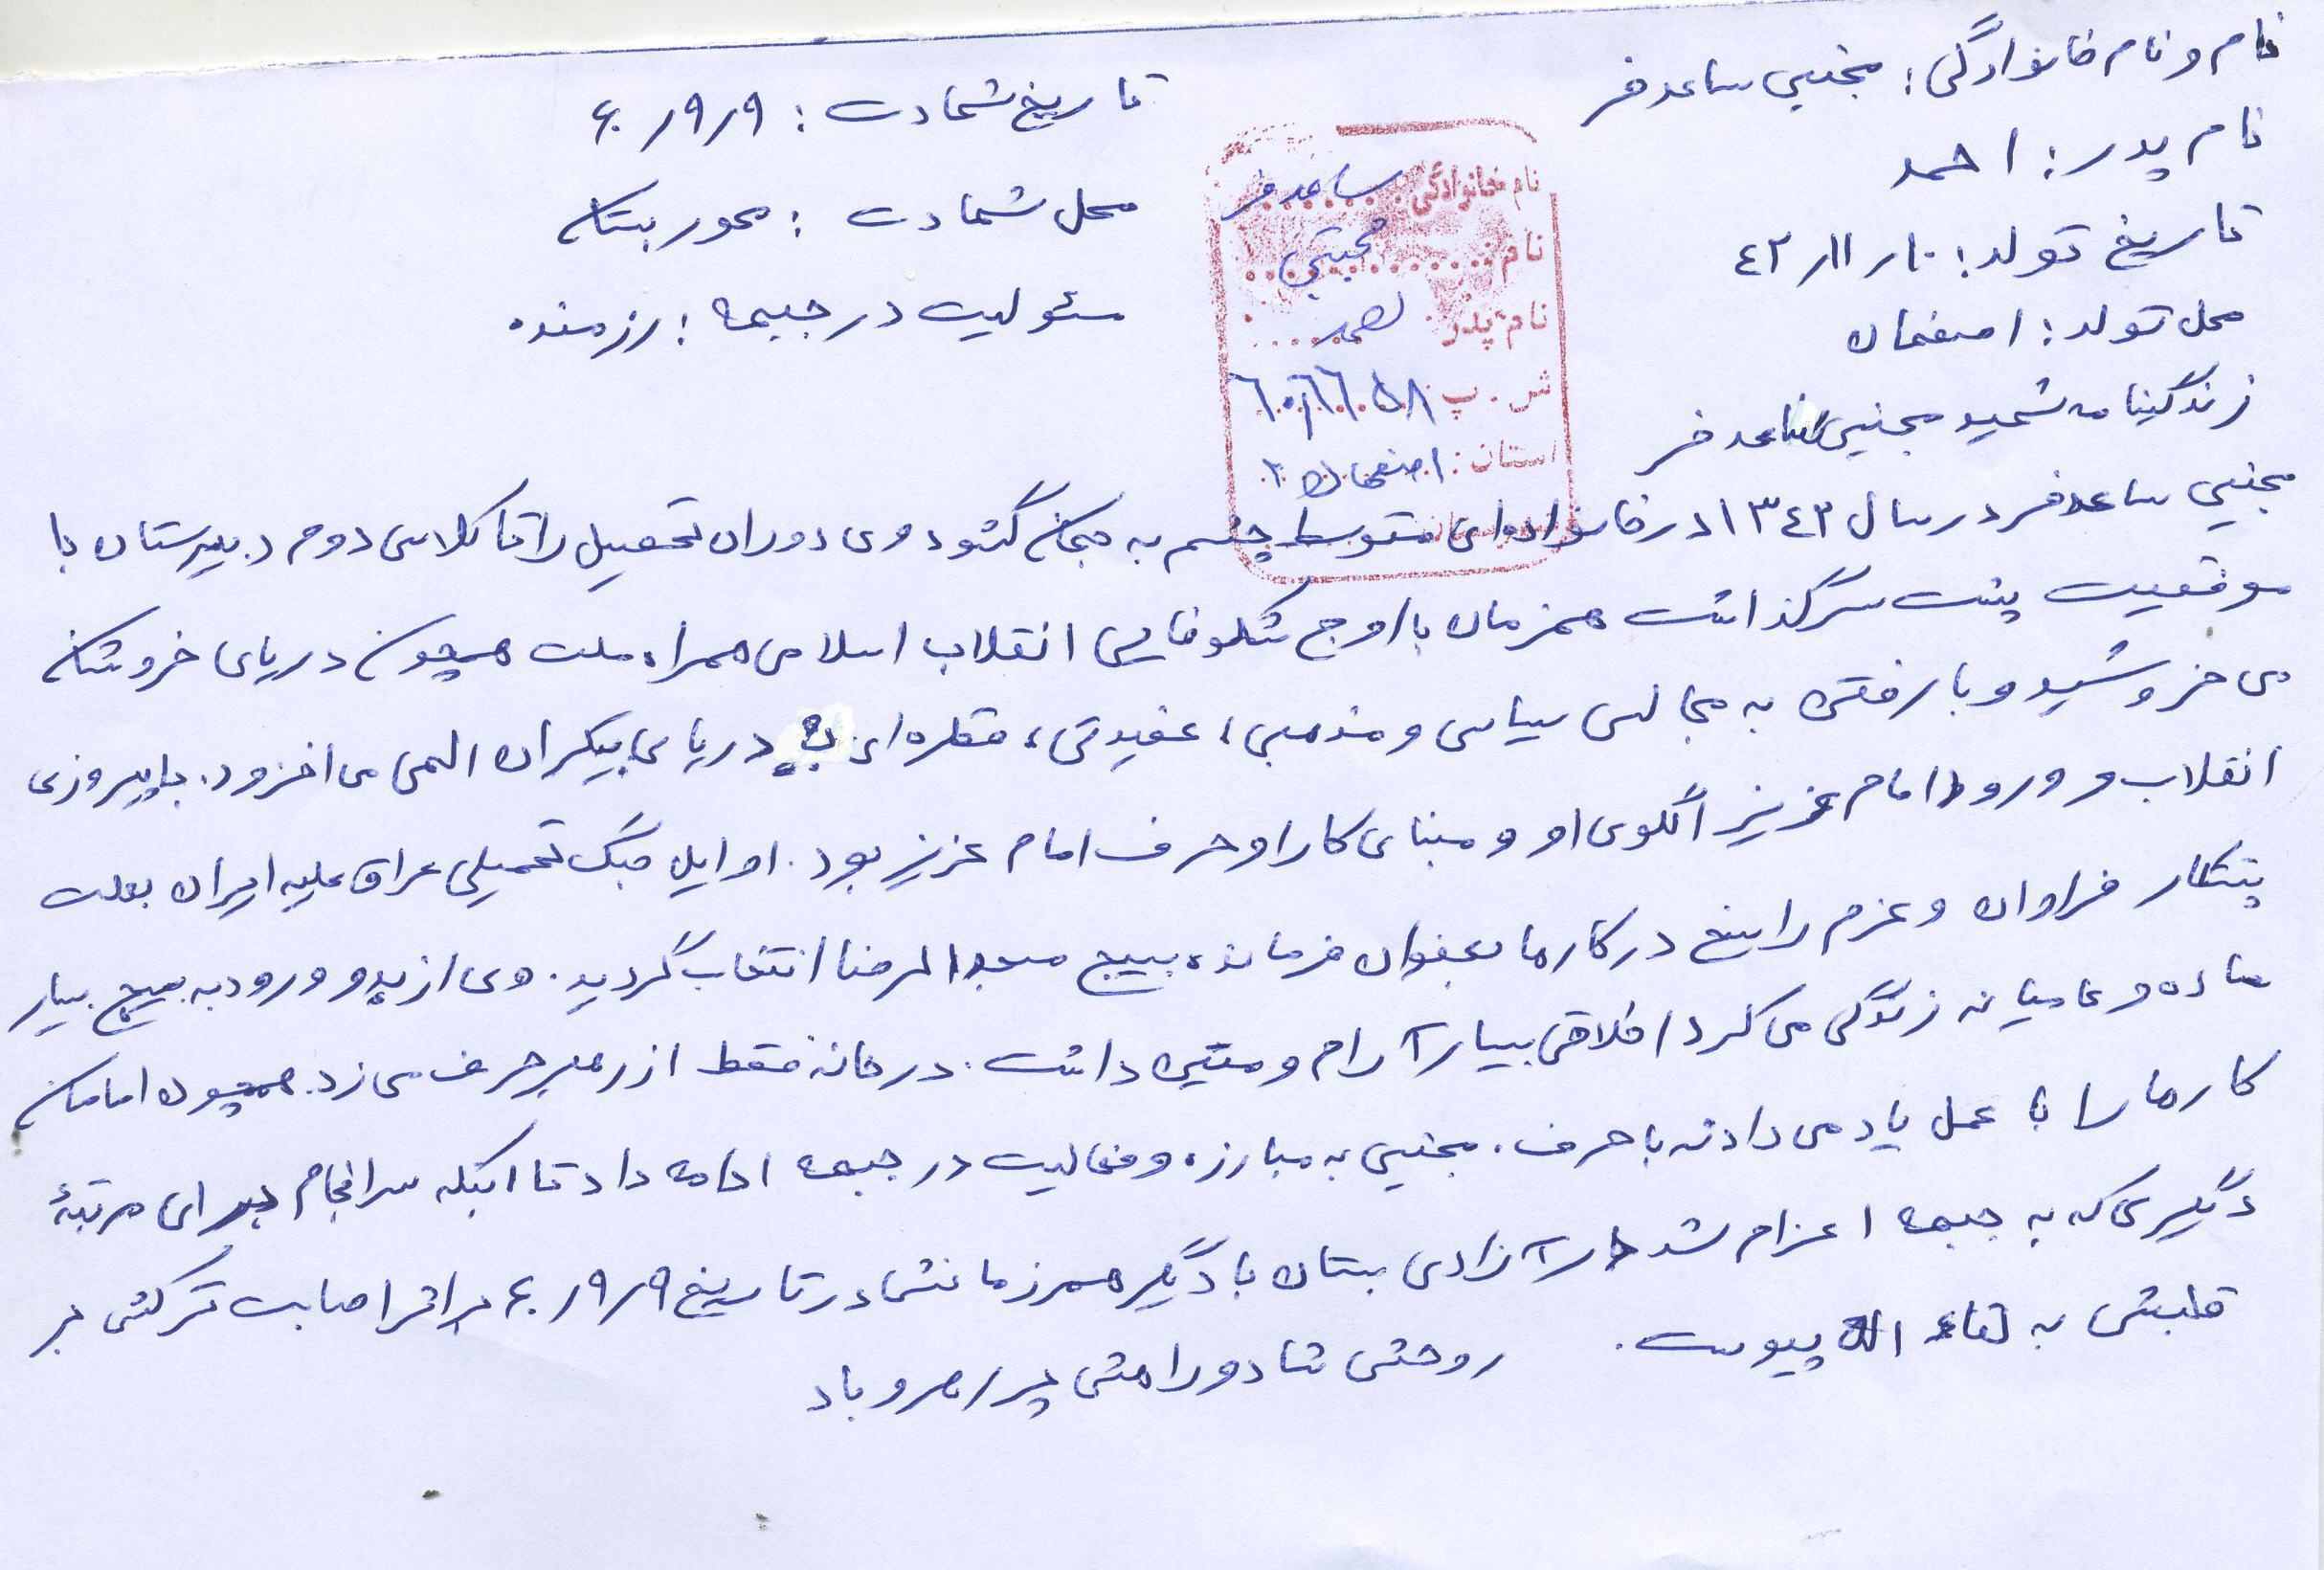 نام و نام خانوادگی : مجتبی ساعدفر
تاریخ شهادت : ۶۰/۹/۹
نام پدر : احمد
محل شهادت : محور بستان
تاریخ تولد : ۴۲/۱۱/۱۰
مسئولیت در جبهه : رزمنده
محل تولد : اصفهان
نام خانوادگی : ساعدفر
نام : مجتبی
نام پدر : احمد
ش . پ
استان : اصفهان
زندگینامه شهید مجتبی ساعدفر
مجتبی ساعدفر در سال ۱۳۴۳ در خانواده‌ای متوسط چشم به جهان گشود وی دوران تحصیل را تا کلاس دوم دبیرستان با
موفقیت پشت سر گذاشت همزمان با اوج شکوفایی انقلاب اسلامی همراه ملت همچون دریای خروشان
می خروشید و با رفتن به مجالس سیاسی و مذهبی ، عقیدتی ، قطره‌ای به دریای بیکران الهی می افزود . با پیروزی
انقلاب و ورود امام عزیز الگوی او و مبنای کار او حرف امام عزیز بود . اوایل جنگ تحمیلی عراق علیه ایران بعلت
پشتکار فراوان و عزم راسخ در کارها بعنوان فرمانده بسیج مسجد الرضا انتخاب گردید . وی از بدو ورود به بسیج بسیار
ساده و عامیانه زندگی می کرد اخلاقی بسیار آرام و متین داشت . در خانه فقط از رهبر حرف می زد . همچون امامان
کارها را با عمل یاد می داد نه با حرف . مجتبی به مبارزه و فعالیت در جبهه ادامه داد تا اینکه سرانجام برای مرتبهٔ
دگیری که به جبهه اعزام شد در آزادی بستان با دگیر همرزمانش در تاریخ ۶۰/۹/۹ بر اثر اصابت ترکش بر
قلبش به لقاء الله پیوست . روحش شاد و راهش پر رهرو باد